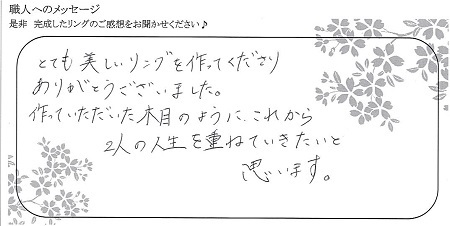 職人へのメッセージ
是非 完成したリングのご感想をお聞かせください♪
とても美しいリングを作ってくださり
ありがとうございました。
作っていただいた木目のように、これから
2人の人生を重ねていきたいと
思います。